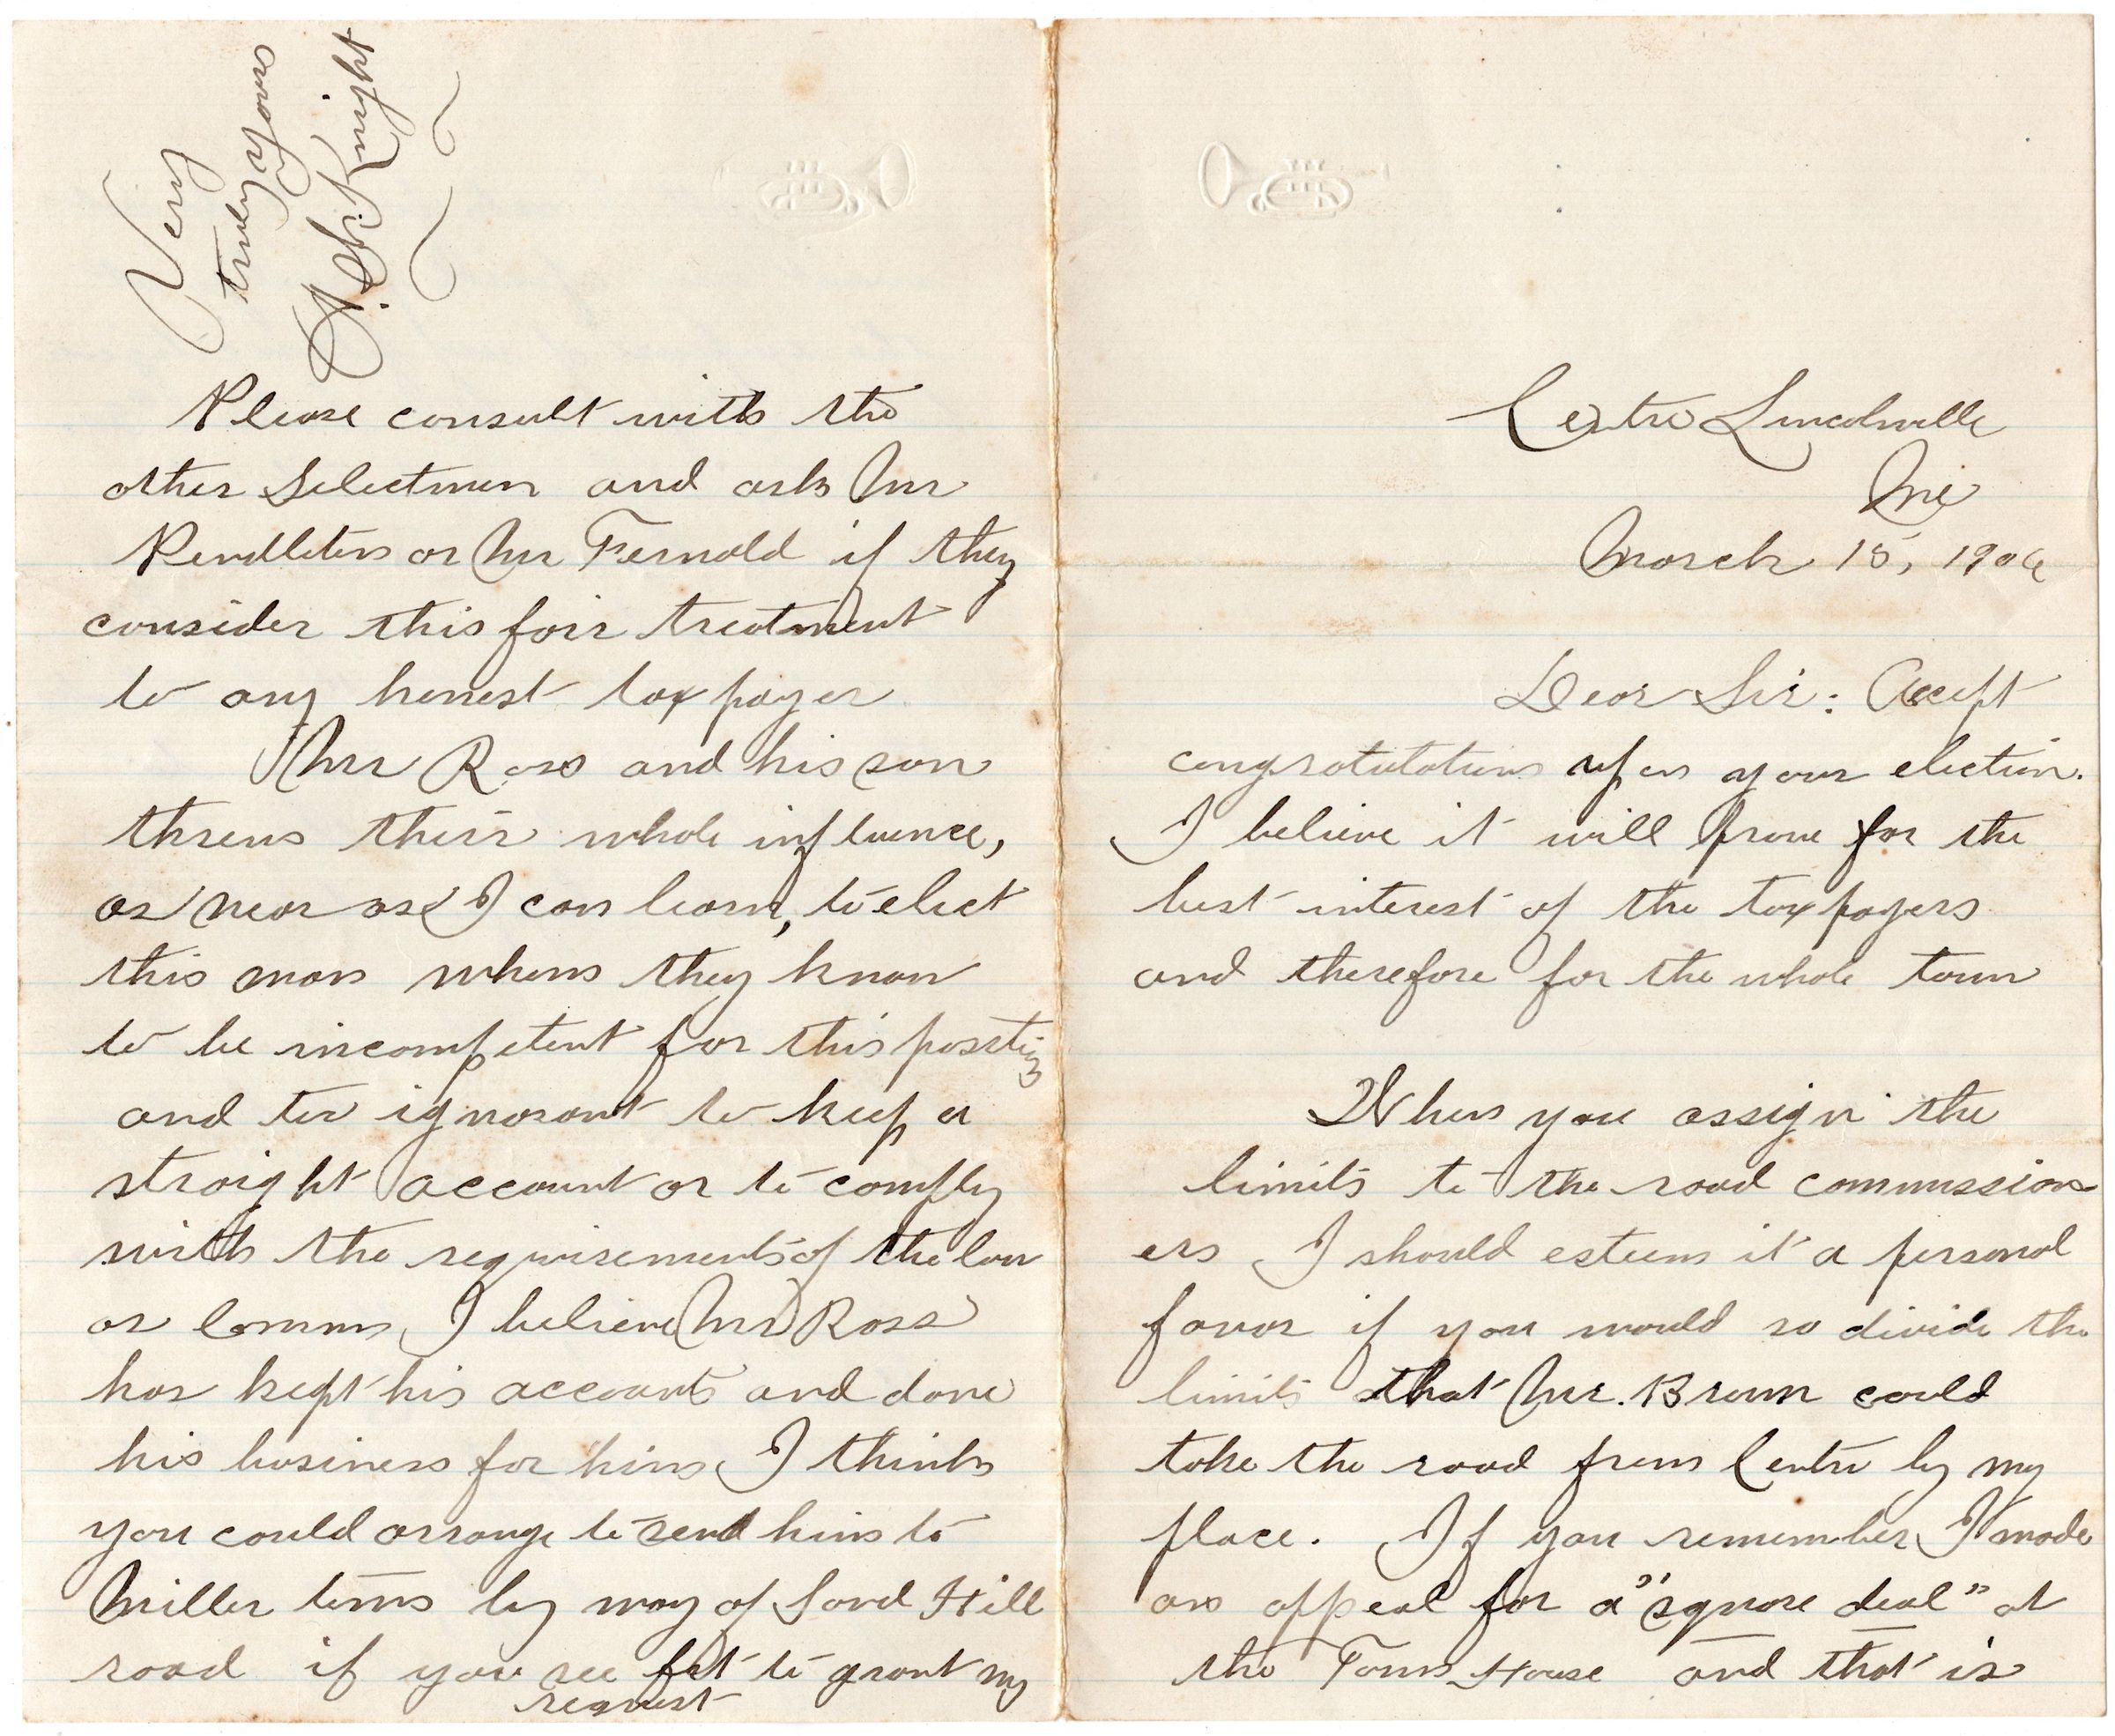 Centre Lincolnville
Me
March 15, 1906
Dear Sir: Accept
congratulations upon your election.
I believe it will prove for the
best interest of the taxpayers
and therefore for the whole town
When you assign the
limits to the road commission
ers I should esteem it a personal
favor if you would so divide the
limits that Mr. Brown could
take the road from Centre by my
place. If you remember I made
an appeal for a "square deal" at
the Town House and that is
Please consult with the
other Selectmen and ask Mr
Pendleton or Mr Fernald if they
consider this fair treatment
to any honest taxpayer
Mr Ross and his son
threw their whole influence,
as near as I can learn, to elect
this man whom they know
to be incompetent for this position
and too ignorant to keep a
straight account or to comply
with the requirements of the law
as I believe Mr Ross
has kept his accounts and done
his business for him I think
you could arrange to send him to
Miller town by way of Sand Hill
road if you see fit to grant my
request
Very
truly yours
Knight